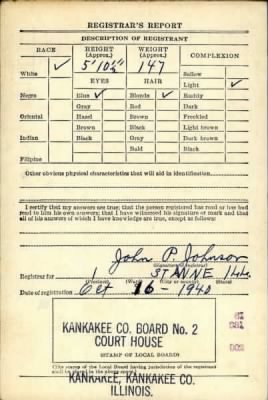 REGISTRAR'S REPORT
DESCRIPTION OF REGISTRANT
RACE HEIGHT (Approx.) WEIGHT (Approx.) COMPLEXION
White ✓ 5' 10½" 147 Sallow
EYES HAIR Light ✓
Negro Blue ✓ Blonde ✓ Ruddy
Gray Red Dark
Oriental Hazel Brown Freckled
Brown Black Light brown
Indian Black Gray Dark brown
Bald Black
Filipino
Other obvious physical characteristics that will aid in identification
I certify that my answers are true; that the person registered has read or has had
read to him his own answers; that I have witnessed his signature or mark and that
all of his answers of which I have knowledge are true, except as follows:
John P. Johnson
(Signature of registrar)
Registrar for 1 ST ANNE Ills.
(Precinct) (Ward) (City or county) (State)
Date of registration Oct 16 - 1940
KANKAKEE CO. BOARD No. 2
COURT HOUSE
(STAMP OF LOCAL BOARD)
(The stamp of the Local Board having jurisdiction of the registrant
shall be placed in the above space.)
KANKAKEE, KANKAKEE CO.
ILLINOIS.